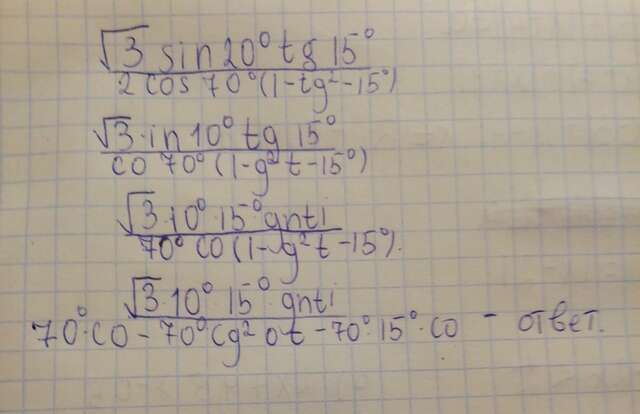 √3 sin20° tg 15°
2 cos 70° (1-tg²-15°)
√3·in10° tg 15°
co 70° (1-g² t-15°)
√3·10° 15° gnti
70° co (1-g²t-15°).
√3·10° 15° gnti
70°·co-70°cg² ot-70°·15°·co - ответ.